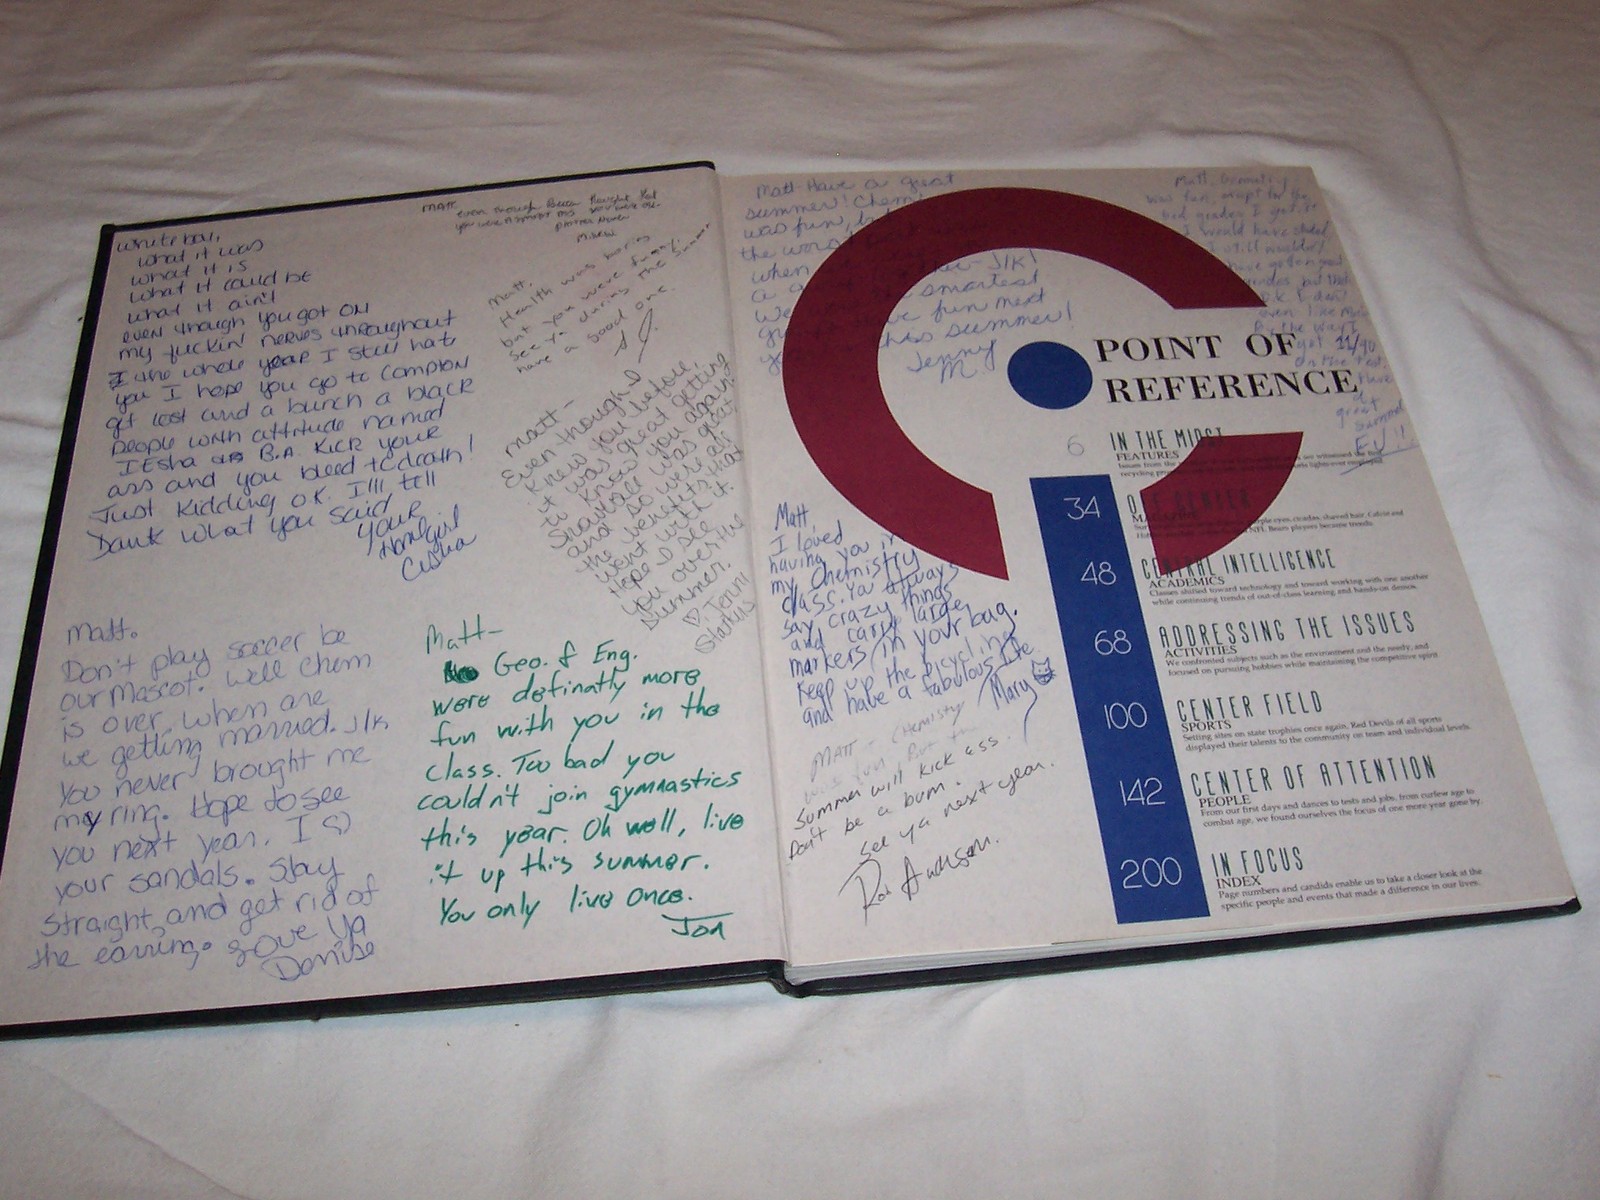 white boy,
what it was
what it is
what it could be
what it ain't
even though you got on
my fuckin' nerves throughout
the whole year I still hate
you I hope you go to Compton
get lost and a bunch a black
people with attitude named
IEsha B.A. Kick your
ass and you bleed to death!
Just Kidding OK. I'll tell
what you said
your
Homegirl
Matt.
even though
Matt,
Health was boring
but you were funny.
See ya during the summer
have a good one.
Matt-
Even though I
knew you before,
it was great getting
to know you again!
Showbiz was great
and so were all
the benefits that
went with it.
Hope I see
you over the
summer.
♡ Jenni
Matt.
Don't play soccer be
our mascot. Well Chem
is over, when are
we getting married. J/K
You never brought me
my ring. Hope to see
you next year. I ♡
your sandals. Stay
straight, and get rid of
the earring. Love Ya
Denise
Matt-
Geo. & Eng.
were definatly more
fun with you in the
class. Too bad you
couldn't join gymnastics
this year. Oh well, live
it up this summer.
You only live once.
Jon
Matt Have a great
summer! Chem
was fun,
the worst
when J/K!
smartest
fun next
this summer!
Jenny
M.
Matt,
was fun, except for the
bad grades I got
I would have
I still wouldn't
have gotten good
O.K. I don't
even like
By the way I
got 21/40
on the test.
Have
a
great
summer
EV!!
POINT OF
REFERENCE
6 IN THE MIDST
FEATURES
Issues from the
recycling
34
48 CENTRAL INTELLIGENCE
ACADEMICS
Classes shifted toward technology and toward working with one another
while continuing trends of out-of-class learning and hands-on demos.
68 ADDRESSING THE ISSUES
ACTIVITIES
We confronted subjects such as the environment and the needy, and
focused on pursuing hobbies while maintaining the competitive spirit
100 CENTER FIELD
SPORTS
Setting sites on state trophies once again, Red Devils of all sports
displayed their talents to the community on team and individual levels.
142 CENTER OF ATTENTION
PEOPLE
From our first days and dances to tests and jobs, from curfew age to
combat age, we found ourselves the focus of one more year gone by.
200 IN FOCUS
INDEX
Page numbers and candids enable us to take a closer look at the
specific people and events that made a difference in our lives.
Matt
I loved
having you in
my Chemistry
class. You always
say crazy things
and carry large
markers in your bag.
Keep up the bicycling
and have a fabulous life.
Mary
MATT - Chemistry
was fun, But this
summer will kick ass.
Don't be a bum.
See ya next year.